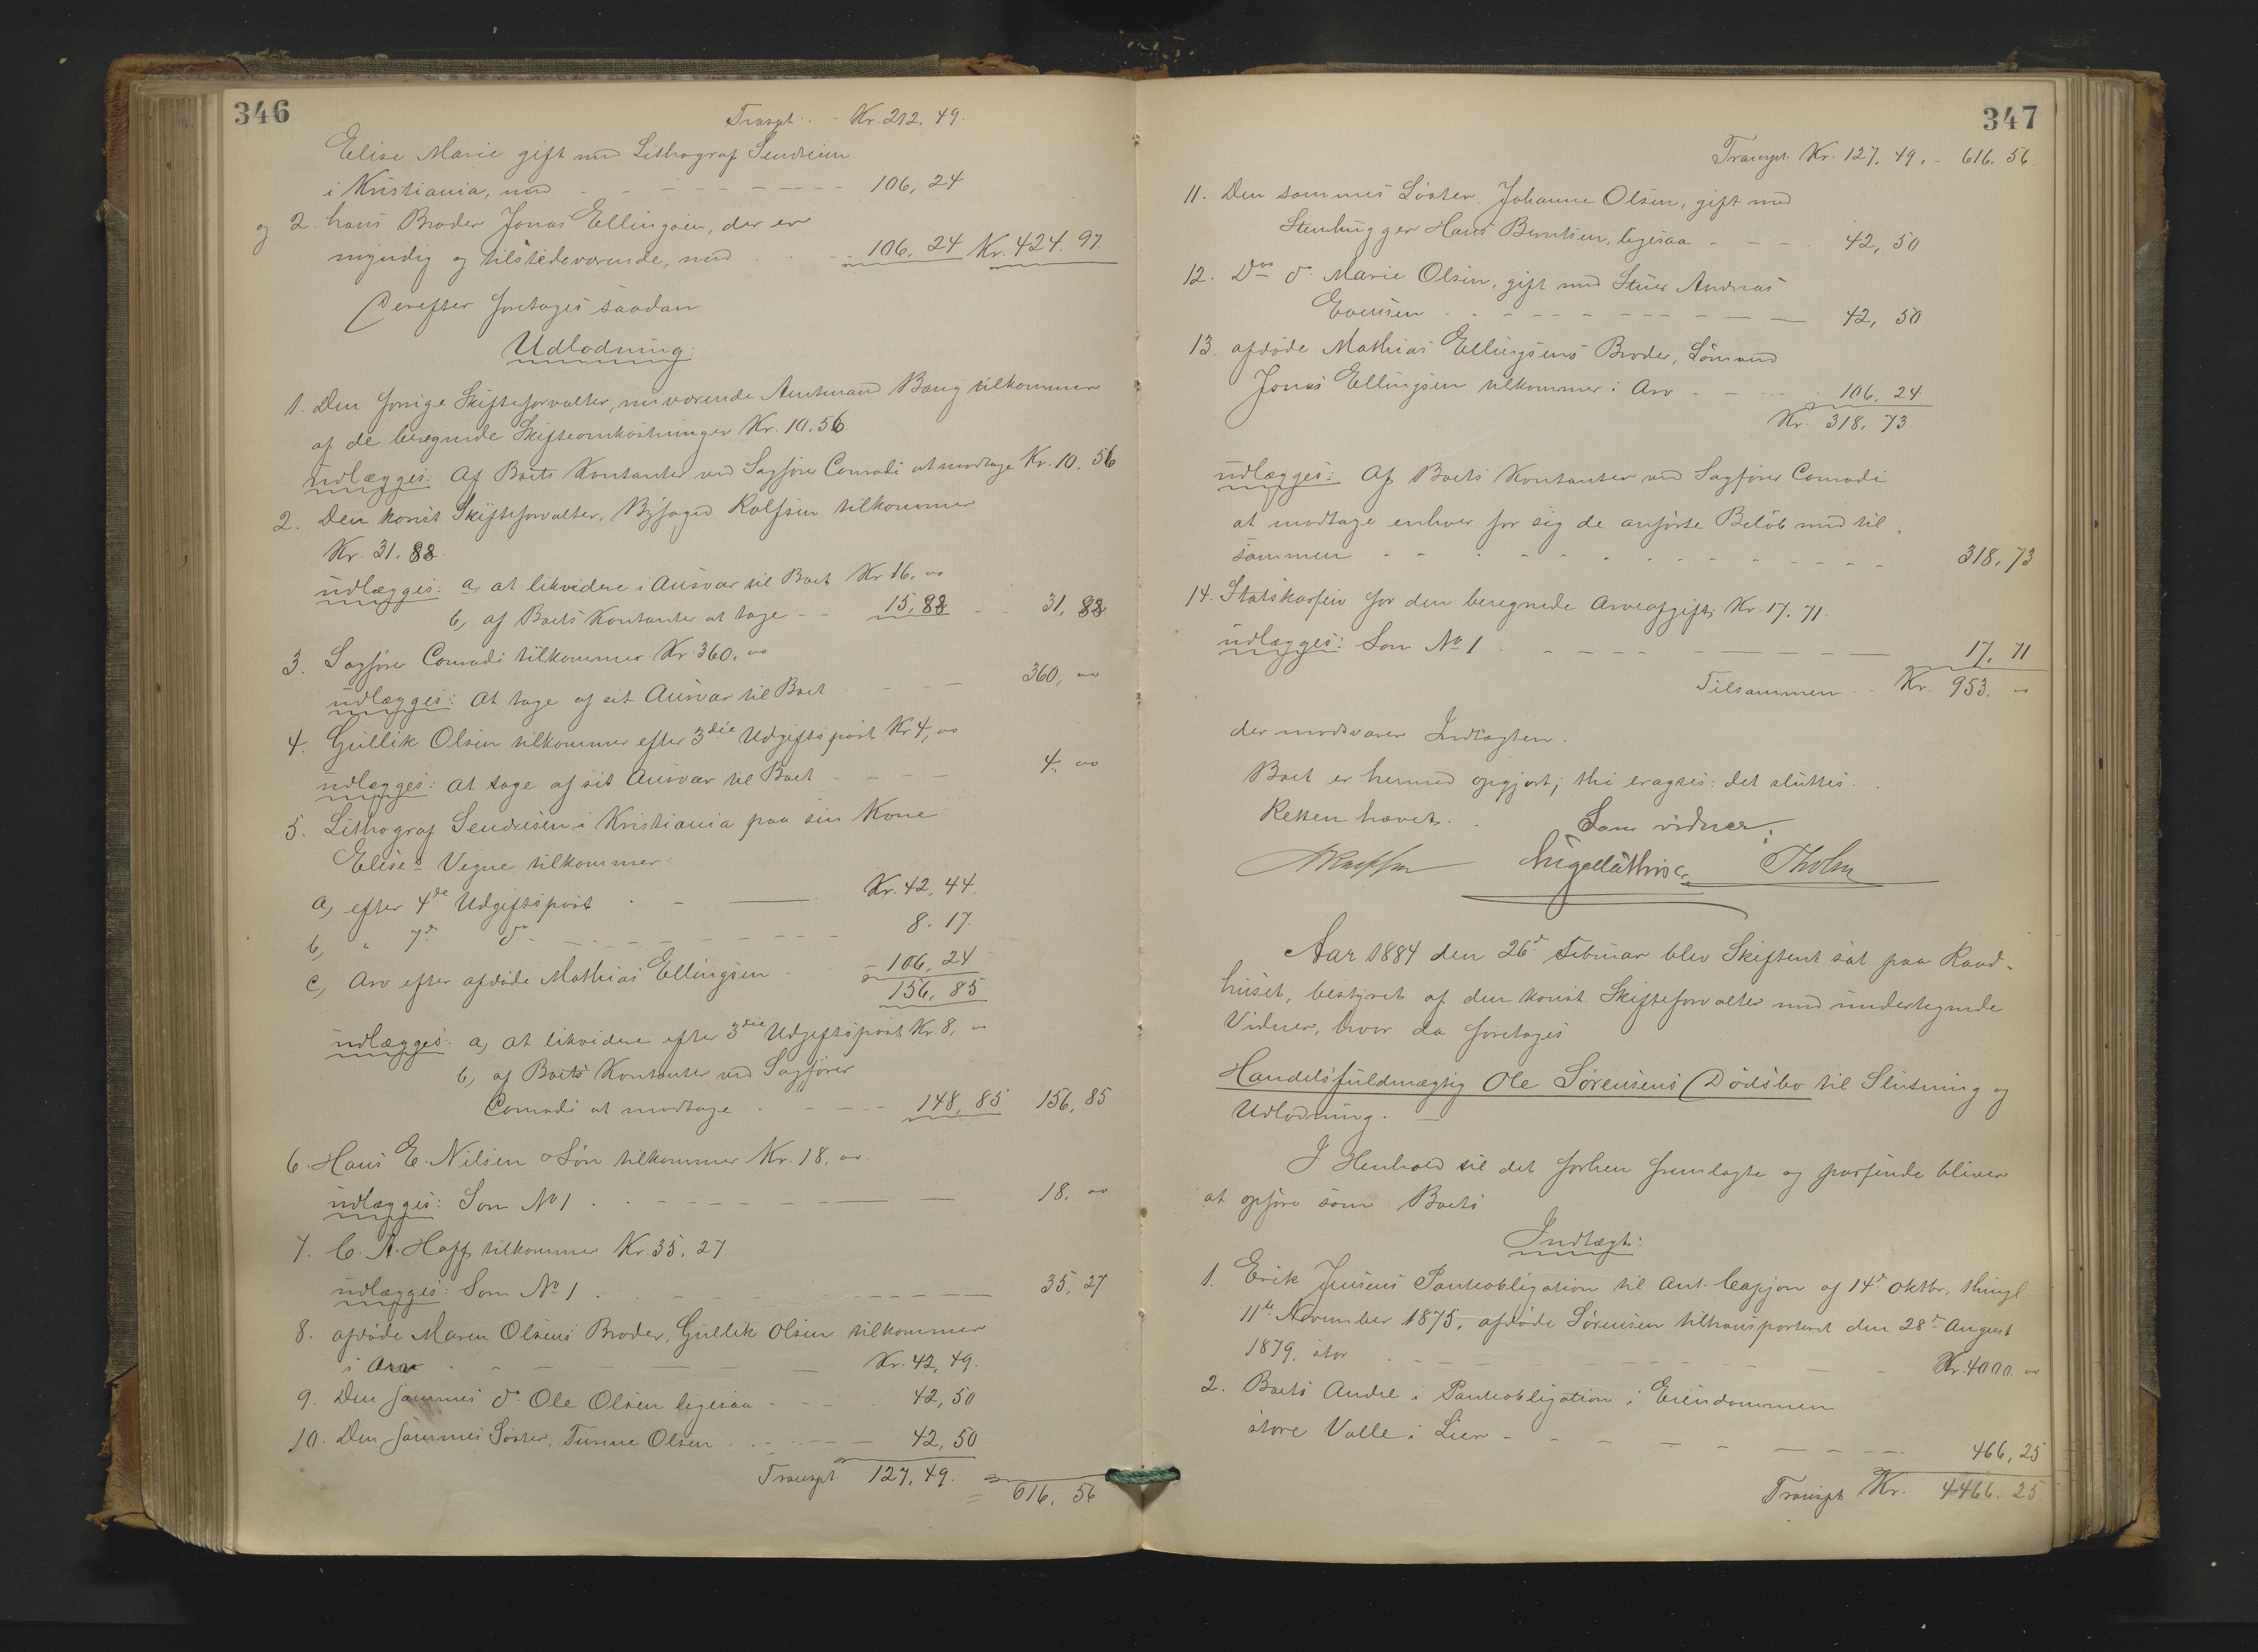 346
Transpt. Kr. 212,49.
Elise Marie gift med Lithograf Sendresen
i Kristiania, med 106,24
og 2. hans Broder Jonas Ellingsen, der er
myndig og tilstedeværende, med 106,24 Kr. 424.97.
Derefter foretoges saadan
Udlodning:
1. Den forrige Skifteforvalter, nuværende Amtmand Bang tilkommer
af de beregnede Skifteomkostninger Kr. 10.56
udlægges: Af Boets Kontanter ved Sagfører Conradi at modtage Kr. 10.56
2. Den konst Skifteforvalter, Byfoged Rolfsen tilkommer
Kr. 31.88.
udlægges: a, at likvidere i Ansvar til Boet Kr 16, "
b, af Boets Kontanter at tage 15,88 31,88
3. Sagfører Conradi tilkommer Kr. 360, "
udlægges: At tage af sit Ansvar til Boet 360, "
4. Gullik Olsen tilkommer efter 3die Udgiftspost Kr 4, "
udlægges: At tage af sit Ansvar til Boet 4. "
5. Lithograf Sendresen i Kristiania paa sin Kone
Elises Vegne tilkommer:
a, efter 4de Udgiftspost Kr. 42,44.
b, " 7de do 8.17.
c, Arv efter afdøde Mathias Ellingsen 106,24
156,85
udlægges: a, at likvidere efter 3die Udgiftspost Kr. 8, "
b, af Boets Kontanter ved Sagfører
Conradi at modtage 148,85 156,85
6. Hans E. Nilsen & Søn tilkommer Kr. 18. "
udlægges: Som No 1 18, "
7. C. A. Hoff tilkommer Kr. 35,27
udlægges: Som No 1 35,27
8. afdøde Maren Olsens Broder, Gullik Olsen tilkommer
i Arv Kr. 42,49.
9. Den sammes do Ole Olsen ligesaa 42,50
10. Den sammes Søster, Olsen 42,50
Transpt. 127,49. 616.56
347
Transpt. Kr. 127.49. 616.56
11. Den sammes Søster, Johanne Olsen, gift med
Stenhugger Hans Berntsen, ligesaa 42,50
12. Ds do Marie Olsen, gift med Andreas
Evensen 42,50
13. afdøde Mathias Ellingsens Broder, Sømand
Jonas Ellingsen tilkommer i Arv 106,24
Kr. 318,73
udlægges: Af Boets Kontanter ved Sagfører Conradi
at modtage enhver for sig de anførte Beløb med til-
sammen 318,73
14. Statskassen for den beregnede Arveafgift, Kr. 17.71.
udlægges: Som No 1 17,71
Tilsammen Kr. 953. "
der modsvarer Indtægten.
Boet er hermed opgjort; thi eragtes: det sluttes.
Retten hævet.
Som vidner:
Tholm
Aar 1884 den 26de Februar blev Skifteret sat paa Raad-
huset, bestyret af den konst. Skifteforvalter med undertegnede
Vidner, hvor da foretoges
Handelsfuldmægtig Ole Sørensens Dødsbo til Slutning og
Udlodning.
I Henhold til det forhen fremlagte og passerede bliver
at opføre som Boets
Indtægt:
1. Erik Jensens Panteobligation til Ant. af 14de Oktbr, thingl.
11te November 1875, afdøde Sørensen tiltransporteret den 28de August
1879, stor Kr. 4000. "
2. Boets Andel i Panteobligation i Eiendommen
store Valle i Lier 466,25
Transpt Kr. 4466.25